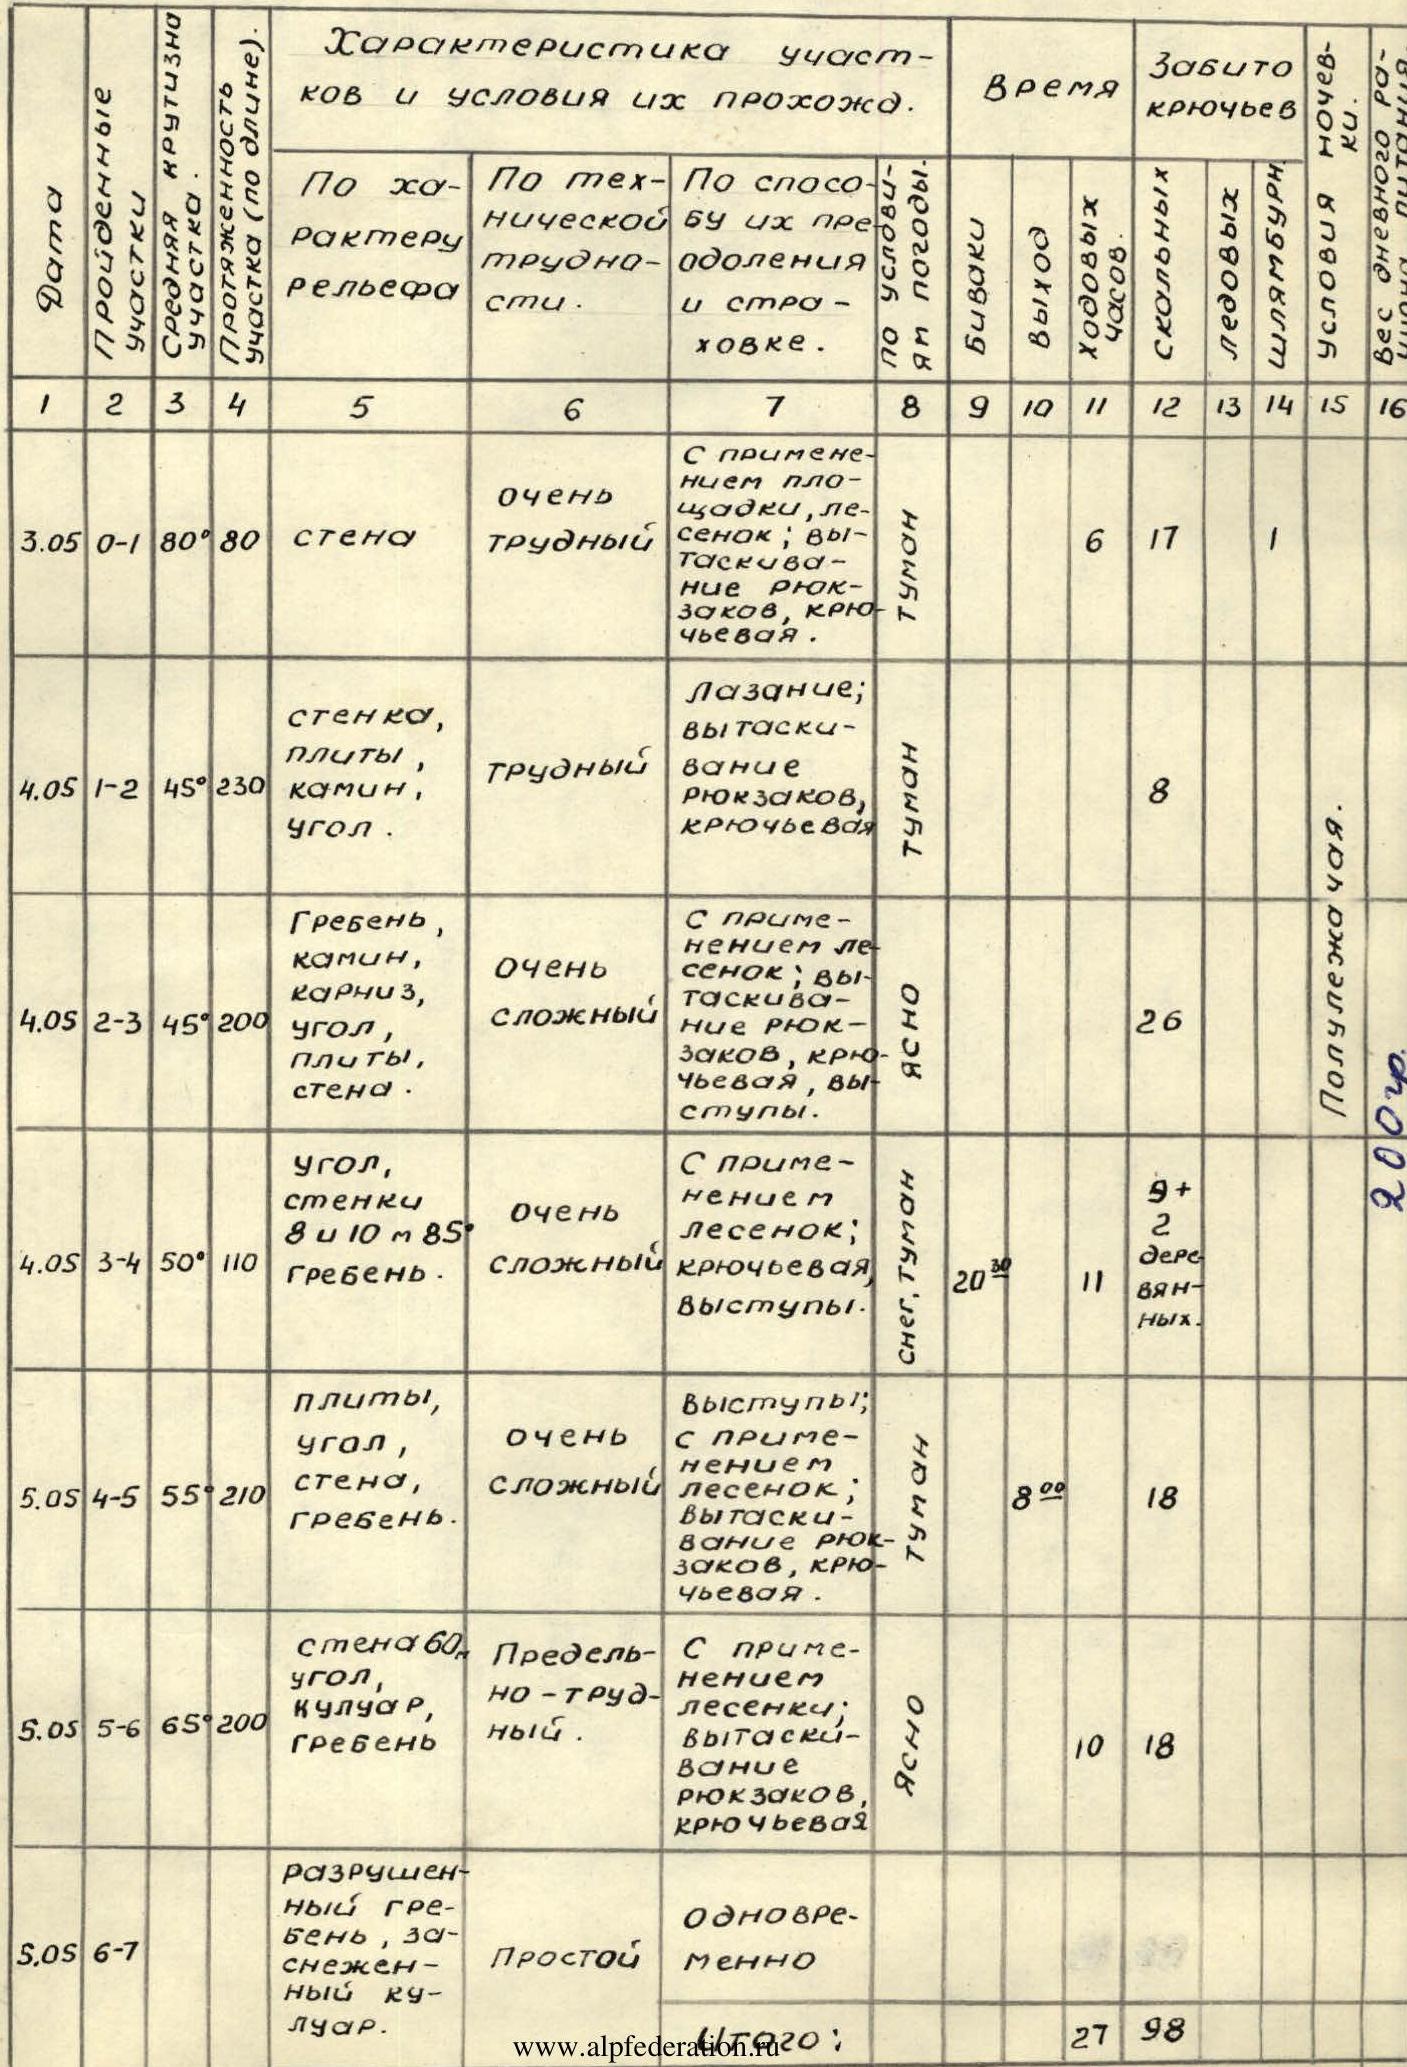 Дата
Пройденные
участки
Средняя крутизна
участка.
Протяженность
участка (по длине).
Характеристика участ-
ков и условия их прохожд.
По ха-
рактеру
рельефа
По тех-
нической
трудно-
сти.
По спосо-
бу их пре-
одоления
и стра-
ховке.
по услови-
ям погоды.
Время
Биваки
выход
ходовых
часов.
Забито
крючьев
скальных
ледовых
шлямбурн.
Условия ночев-
ки.
Вес дневного ра-
циона питания.
1 2 3 4 5 6 7 8 9 10 11 12 13 14 15 16
3.05 0-1 80° 80
стена
очень
трудный
С примене-
нием пло-
щадки, ле-
сенок; вы-
таскива-
ние рюк-
заков, крю-
чьевая.
туман
6 17 1
4.05 1-2 45° 230
стенка,
плиты,
камин,
угол.
трудный
лазание;
вытаски-
вание
рюкзаков,
крючьевая
туман
8
4.05 2-3 45° 200
Гребень,
камин,
карниз,
угол,
плиты,
стена.
очень
сложный
С приме-
нением ле-
сенок; вы-
таскива-
ние рюк-
заков, крю-
чьевая, вы-
ступы.
ясно
26
4.05 3-4 50° 110
угол,
стенки
8 и 10 м 85°
гребень.
очень
сложный
С приме-
нением
лесенок;
крючьевая,
выступы.
снег, туман
20 30
11
9+
2
дере-
вян-
ных.
5.05 4-5 55° 210
плиты,
угол,
стена,
гребень.
очень
сложный
выступы;
с приме-
нением
лесенок;
вытаски-
вание рюк-
заков, крю-
чьевая.
туман
8 00
18
5.05 5-6 65° 200
стена 60м
угол,
кулуар,
гребень
Предель-
но-труд-
ный.
С приме-
нением
лесенки;
вытаски-
вание
рюкзаков,
крючьевая
ясно
10 18
5.05 6-7
разрушен-
ный гре-
бень, за-
снежен-
ный ку-
луар.
простой
одновре-
менно
Полулежачая.
200гр.
Итого: 27 98
www.alpfederation.ru